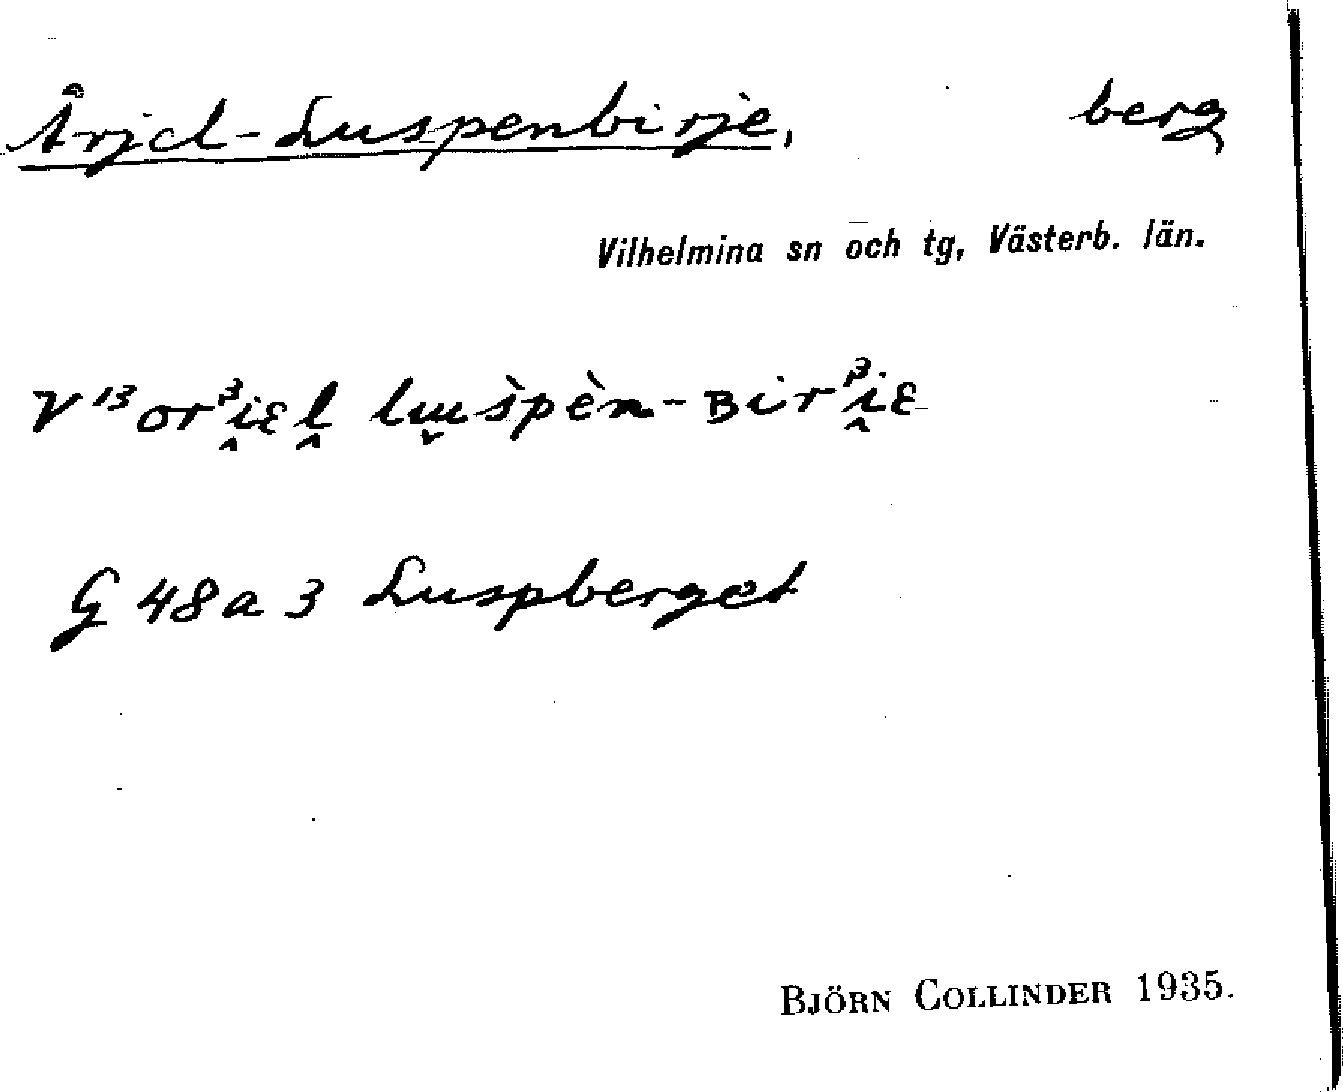 Årjel-Luspenbirje, berg
Vilhelmina sn och tg, Västerb. län.
V 13
G 48 a 3 Luspberget
BJÖRN COLLINDER 1935.